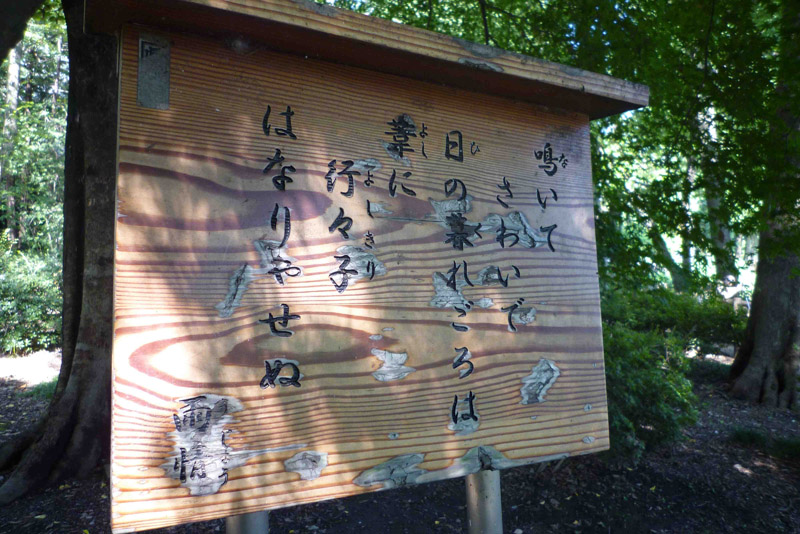 鳴いて
さわいで
日の暮れごろは
葦に
行々子
はなりやせぬ
雨情